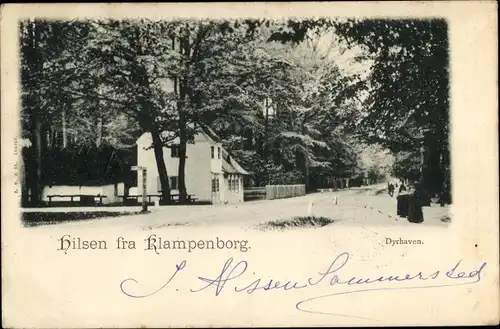 Hilsen fra Klampenborg.
Dyrhaven.
J. Nissen Sommersted